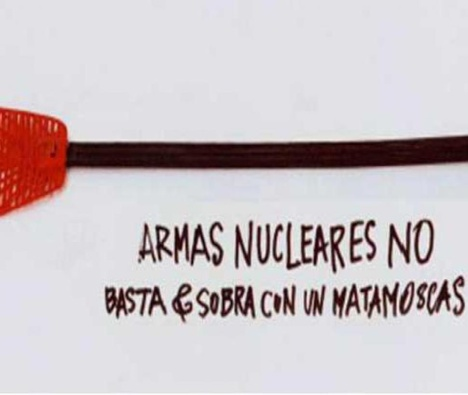 ARMAS NUCLEARES NO
BASTA & SOBRA CON UN MATAMOSCAS